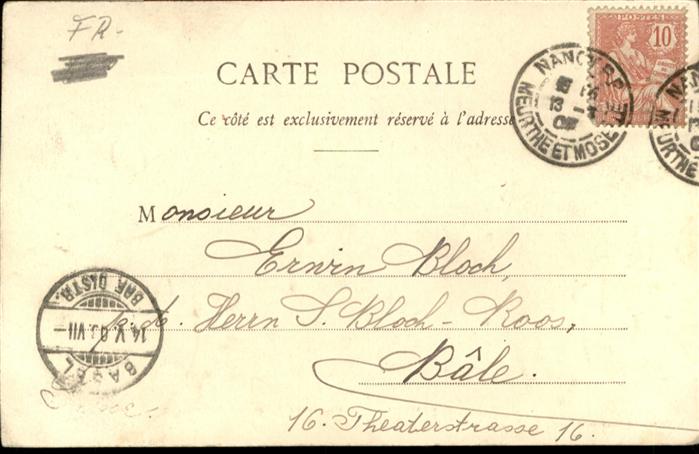 FR-
POSTES
10
CARTE POSTALE
Ce côté est exclusivement réservé à l'adresse
NANCY R.P.
13
MEURTHE ET MOSELLE
NANCY
MEURTHE
Monsieur
Erwin Bloch,
Herrn S. Bloch-Roos,
Bâle.
16. Theaterstrasse 16.
BRF. DISTR.
14.V.03.VII-
BASEL